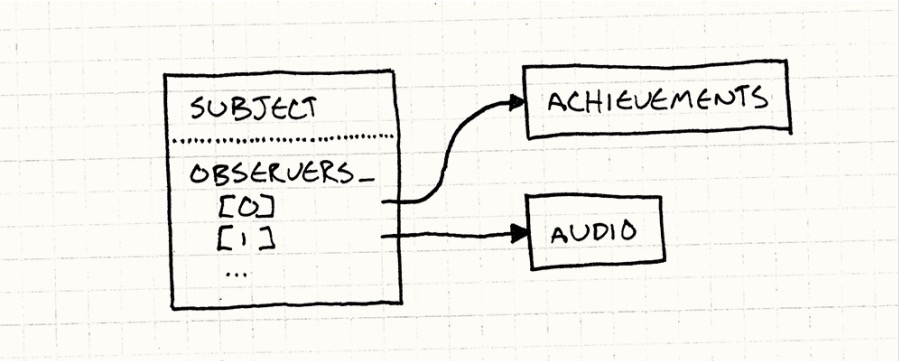 SUBJECT
OBSERVERS_
[0]
[1]
...
ACHIEVEMENTS
AUDIO